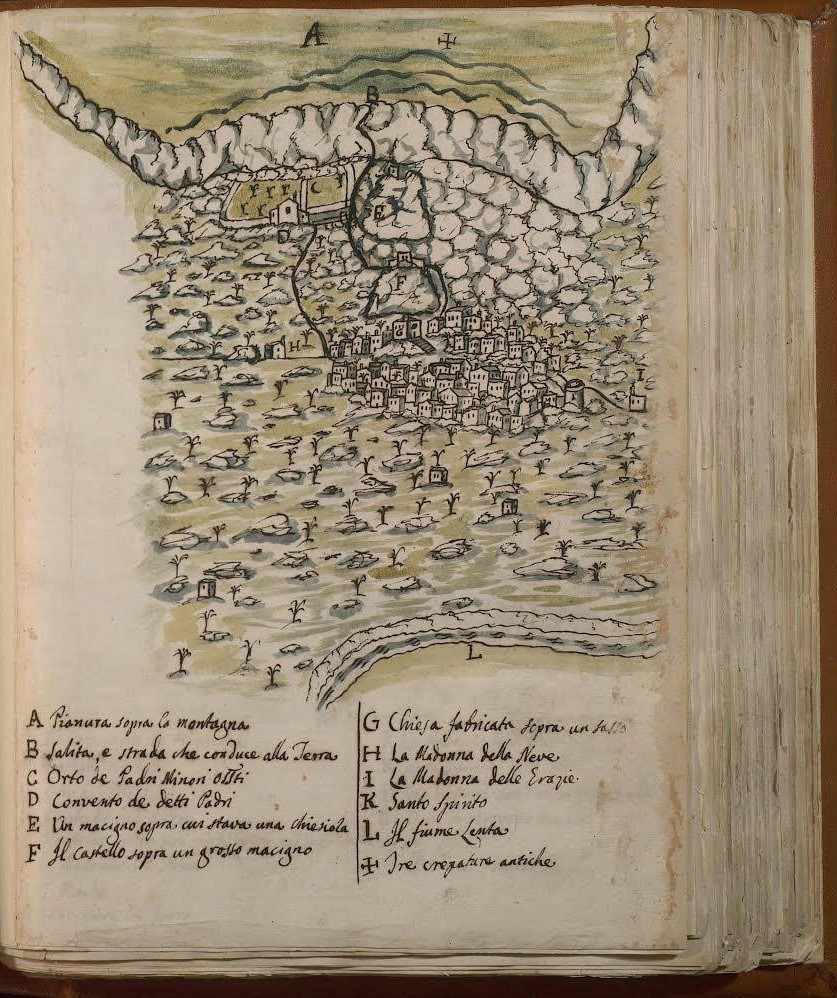 A ✢
B
C
E
D
F
G
H
I
L
A Pianura sopra la montagna
B Salita, e strada che conduce alla Terra
C Orto de Padri Minori Oss.ti
D Convento de detti Padri
E Un macigno sopra cui stava una chiesiola
F Il Castello sopra un grosso macigno
G Chiesa fabricata sopra un sasso
H La Madonna della Neve
I La Madonna delle Grazie
K Santo Spirito
L Il fiume Lenta
✢ Tre crepature antiche